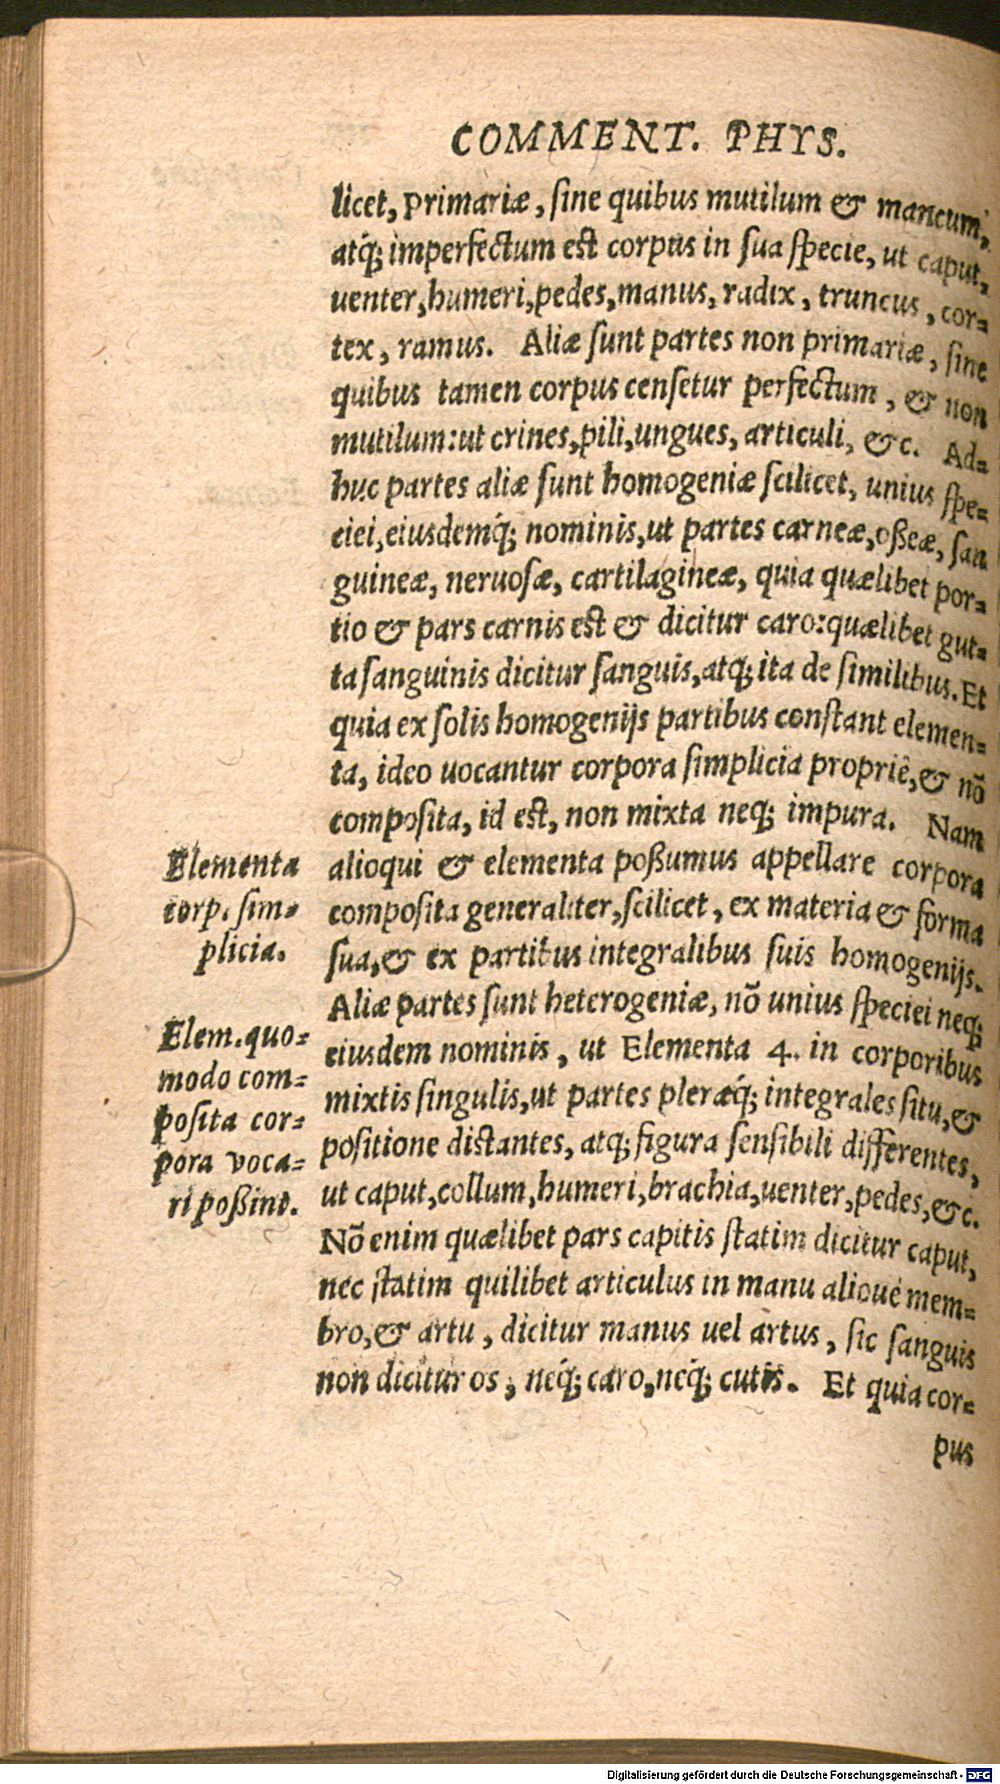 COMMENT. PHYS.
licet, primariæ, ſine quibus mutilum & mancum,
atq́; imperfectum eſt corpus in ſua ſpecie, ut caput,
uenter, humeri, pedes, manus, radix, truncus, cor-
tex, ramus. Aliæ ſunt partes non primariæ, ſine
quibus tamen corpus cenſetur perfectum, & non
mutilum: ut crines, pili, ungues, articuli, &c. Ad-
huc partes aliæ ſunt homogeniæ ſcilicet, unius ſpe-
ciei, eiusdemq́; nominis, ut partes carneæ, oßeæ, ſan
guineæ, neruoſæ, cartilagineæ, quia quælibet por-
tio & pars carnis eſt & dicitur caro: quælibet gut-
ta ſanguinis dicitur ſanguis, atq; ita de ſimilibus. Et
quia ex ſolis homogenijs partibus conſtant elemen-
ta, ideo uocantur corpora ſimplicia propriè, & nõ
compoſita, id eſt, non mixta neq; impura. Nam
alioqui & elementa poßumus appellare corpora
compoſita generaliter, ſcilicet, ex materia & forma
ſua, & ex partibus integralibus ſuis homogenijs.
Aliæ partes ſunt heterogeniæ, nõ unius ſpeciei neq;
eiusdem nominis, ut Elementa 4. in corporibus
mixtis ſingulis, ut partes pleræq́; integrales ſitu, &
poſitione diſtantes, atq; figura ſenſibili differentes,
ut caput, collum, humeri, brachia, uenter, pedes, &c.
Nõ enim quælibet pars capitis ſtatim dicitur caput,
nec ſtatim quilibet articulus in manu alioué mem-
bro, & artu, dicitur manus uel artus, ſic ſanguis
non dicitur os, neq́; caro, neq́; cutis. Et quia cor-
pus
Elementa
corp. ſim-
plicia.
Elem. quo-
modo com-
poſita cor-
pora voca-
ri poßint.
Digitalisierung gefördert durch die Deutsche Forschungsgemeinschaft - DFG